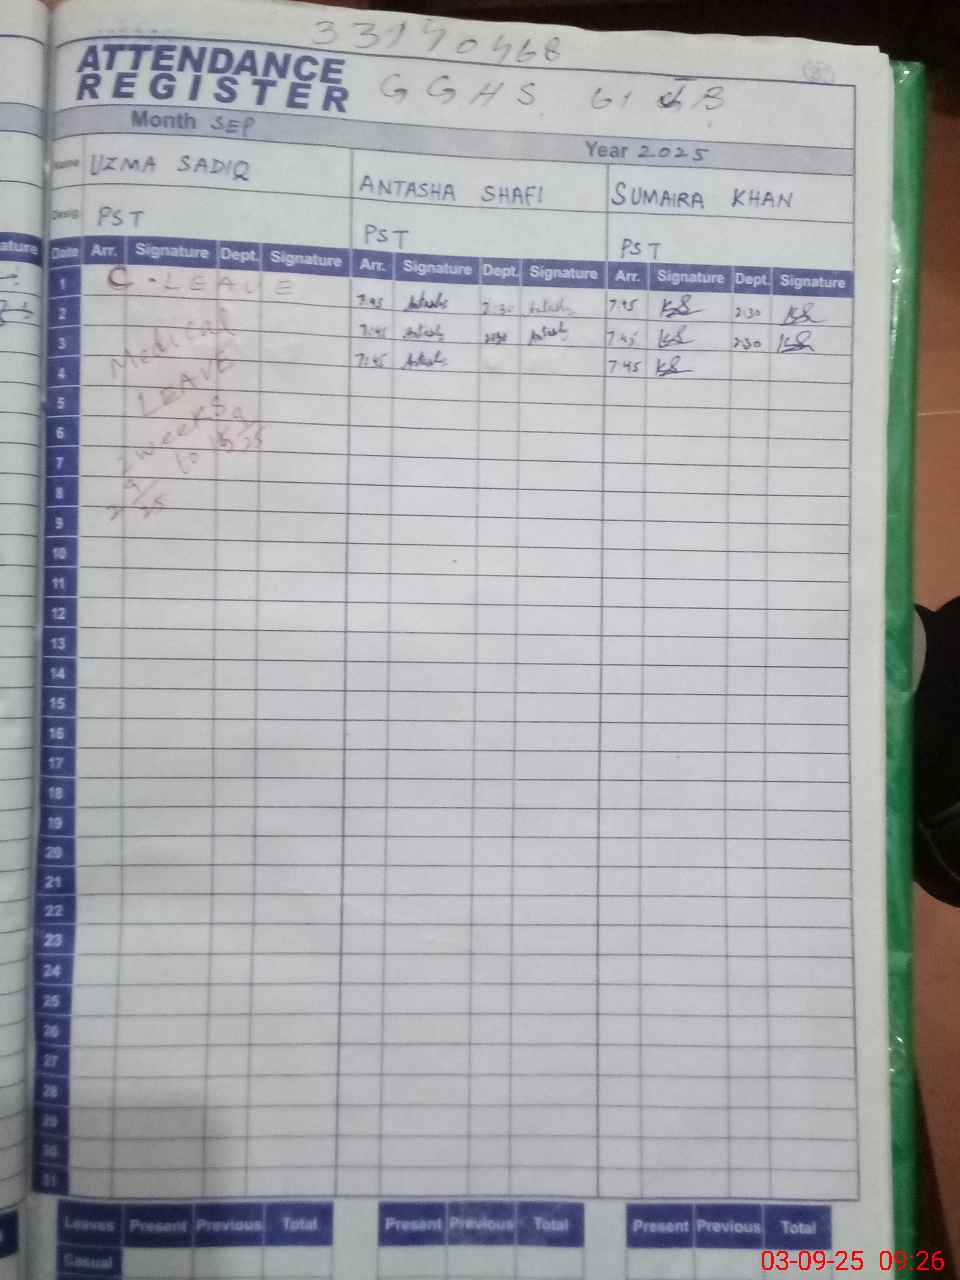 33140468
ATTENDANCE
REGISTER
GGHS 61 JB
Month SEP
Year 2025
Name UZMA SADIQ ANTASHA SHAFI SUMAIRA KHAN
Desig PST PST PST
ature Date Arr. Signature Dept. Signature Arr. Signature Dept. Signature Arr. Signature Dept. Signature
1 C-LEAVE 7:45 2:30 7:45 2:30
2 7:45 2:30 7:45 2:30
3 Medical 7:45 7:45
4 LEAVE
5
6 2 weeks
7 to
8
9
10
11
12
13
14
15
16
17
18
19
20
21
22
23
24
25
26
27
28
29
30
31
Leaves Present Previous Total Present Previous Total Present Previous Total
Casual
03-09-25 09:26